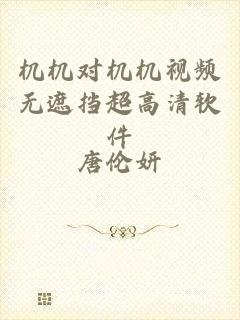 机机对机机视频
无遮挡超高清软
件
唐伦妍